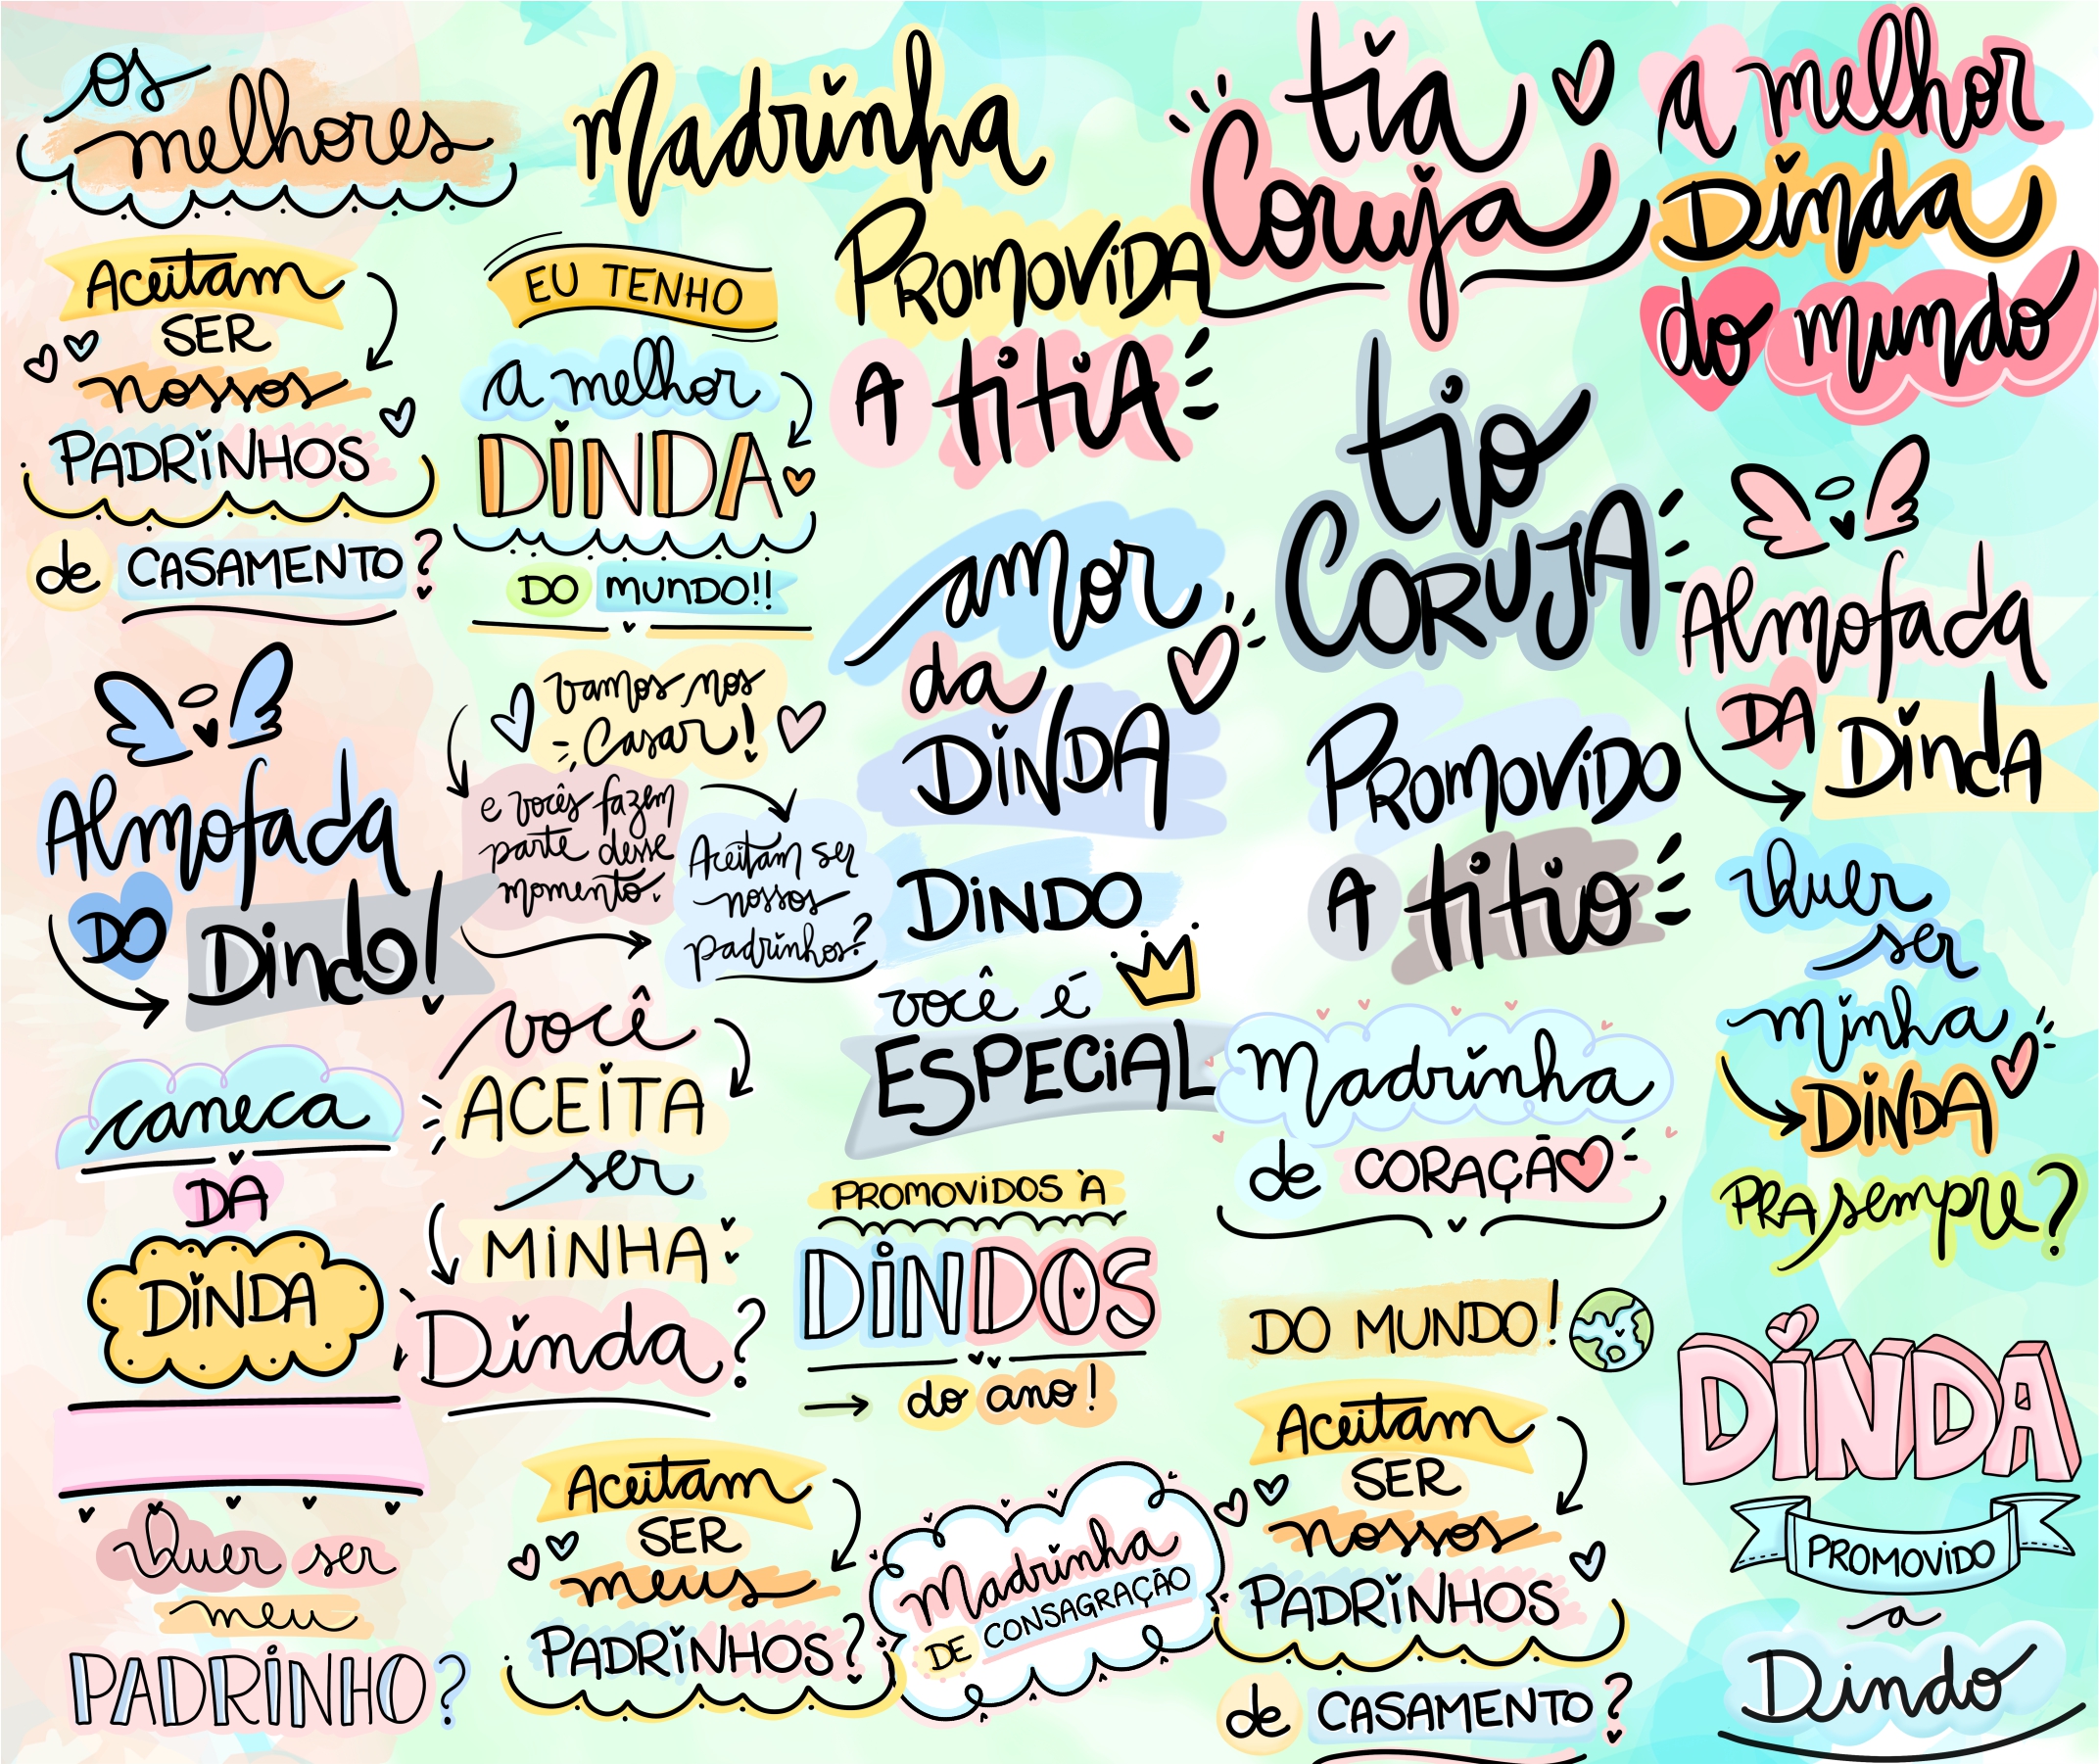 os
melhores
Aceitam
SER
nossos
PADRiNHOS
de CASAMENTO?
Almofada
DO
Dindo!
caneca
DA
DiNDA
Quer ser
meu
PADRiNHO?
EU TENHO
a melhor
DiNDA
DO MUNDO!!
vamos nos
Casar!
e vocês fazem
parte desse
momento.
Aceitam ser
nossos
padrinhos?
você
ACEiTA
ser
MiNHA
Dinda?
Aceitam
SER
meus
PADRiNHOS?
Madrinha
PROMOViDA
A titiA
amor
da
DiNDA
DiNDO
você é
ESPECiAL
PROMOViDOS À
DiNDOS
do ano!
Madrinha
DE CONSAGRAÇÃO
tia
Coruja
tio
CORUJA
PROMOViDO
A titio
Madrinha
de CORAÇÃO
DO MUNDO!
Aceitam
SER
nossos
PADRiNHOS
de CASAMENTO?
a melhor
Dinda
do mundo
Almofada
DA
DindA
Quer
ser
minha
DiNDA
PRA sempre?
DiNDA
PROMOViDO
a
Dindo